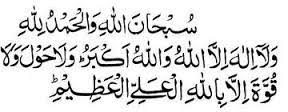 سُبْحَانَ اللهِ وَالْحَمْدُ لِلّٰهِ
وَلَآ اِلٰهَ اِلَّا اللهُ وَاللهُ اَكْبَرُ وَلَا حَوْلَ وَلَا
قُوَّةَ اِلَّا بِاللهِ الْعَلِيِّ الْعَظِيْمِ